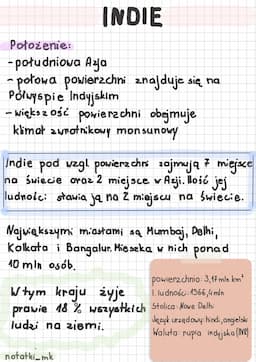 INDIE
Położenie:
- południowa Azja
- połowa powierzchni znajduje się na
Półwyspie Indyjskim
- większość powierzchni obejmuje
klimat zwrotnikowy monsunowy
Indie pod wzgl. powierzchni zajmują 7 miejsce
na świecie oraz 2 miejsce w Azji. Ilość jej
ludności stawia ją na 2 miejscu na świecie.
Największymi miastami są Mumbaj, Delhi,
Kalkata i Bangalur. Mieszka w nich ponad
10 mln osób.
W tym kraju żyje
prawie 18 % wszystkich
ludzi na ziemi.
powierzchnia: 3,17 mln km²
l. ludności: 1366,4 mln
Stolica: Nowe Delhi
Język urzędowy: hindi, angielski
Waluta: rupia indyjska (INR)
notatki_mk